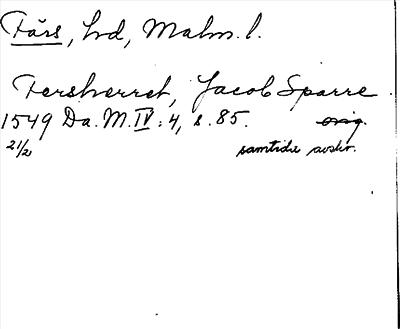 Färs, hd, Malm. l.
Fersherret, Jacob Sparre
1549 Da. M. IV: 4, s. 85. orig.
21/2 samtida avskr.